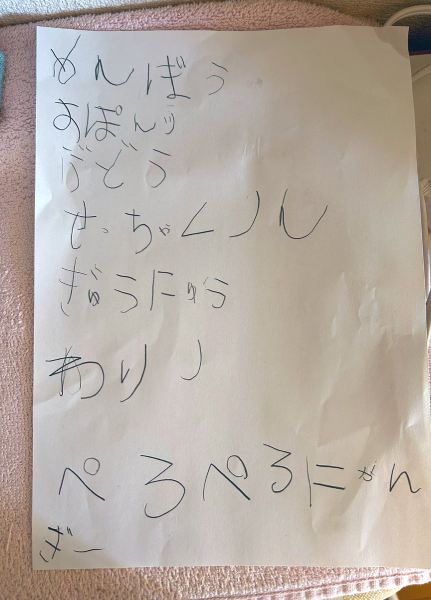 めんぼう
あぽんり
ごどう
せっちゃくノん
ぎゅうにゅう
わりノ
ぺろぺろにゃん
ぎー